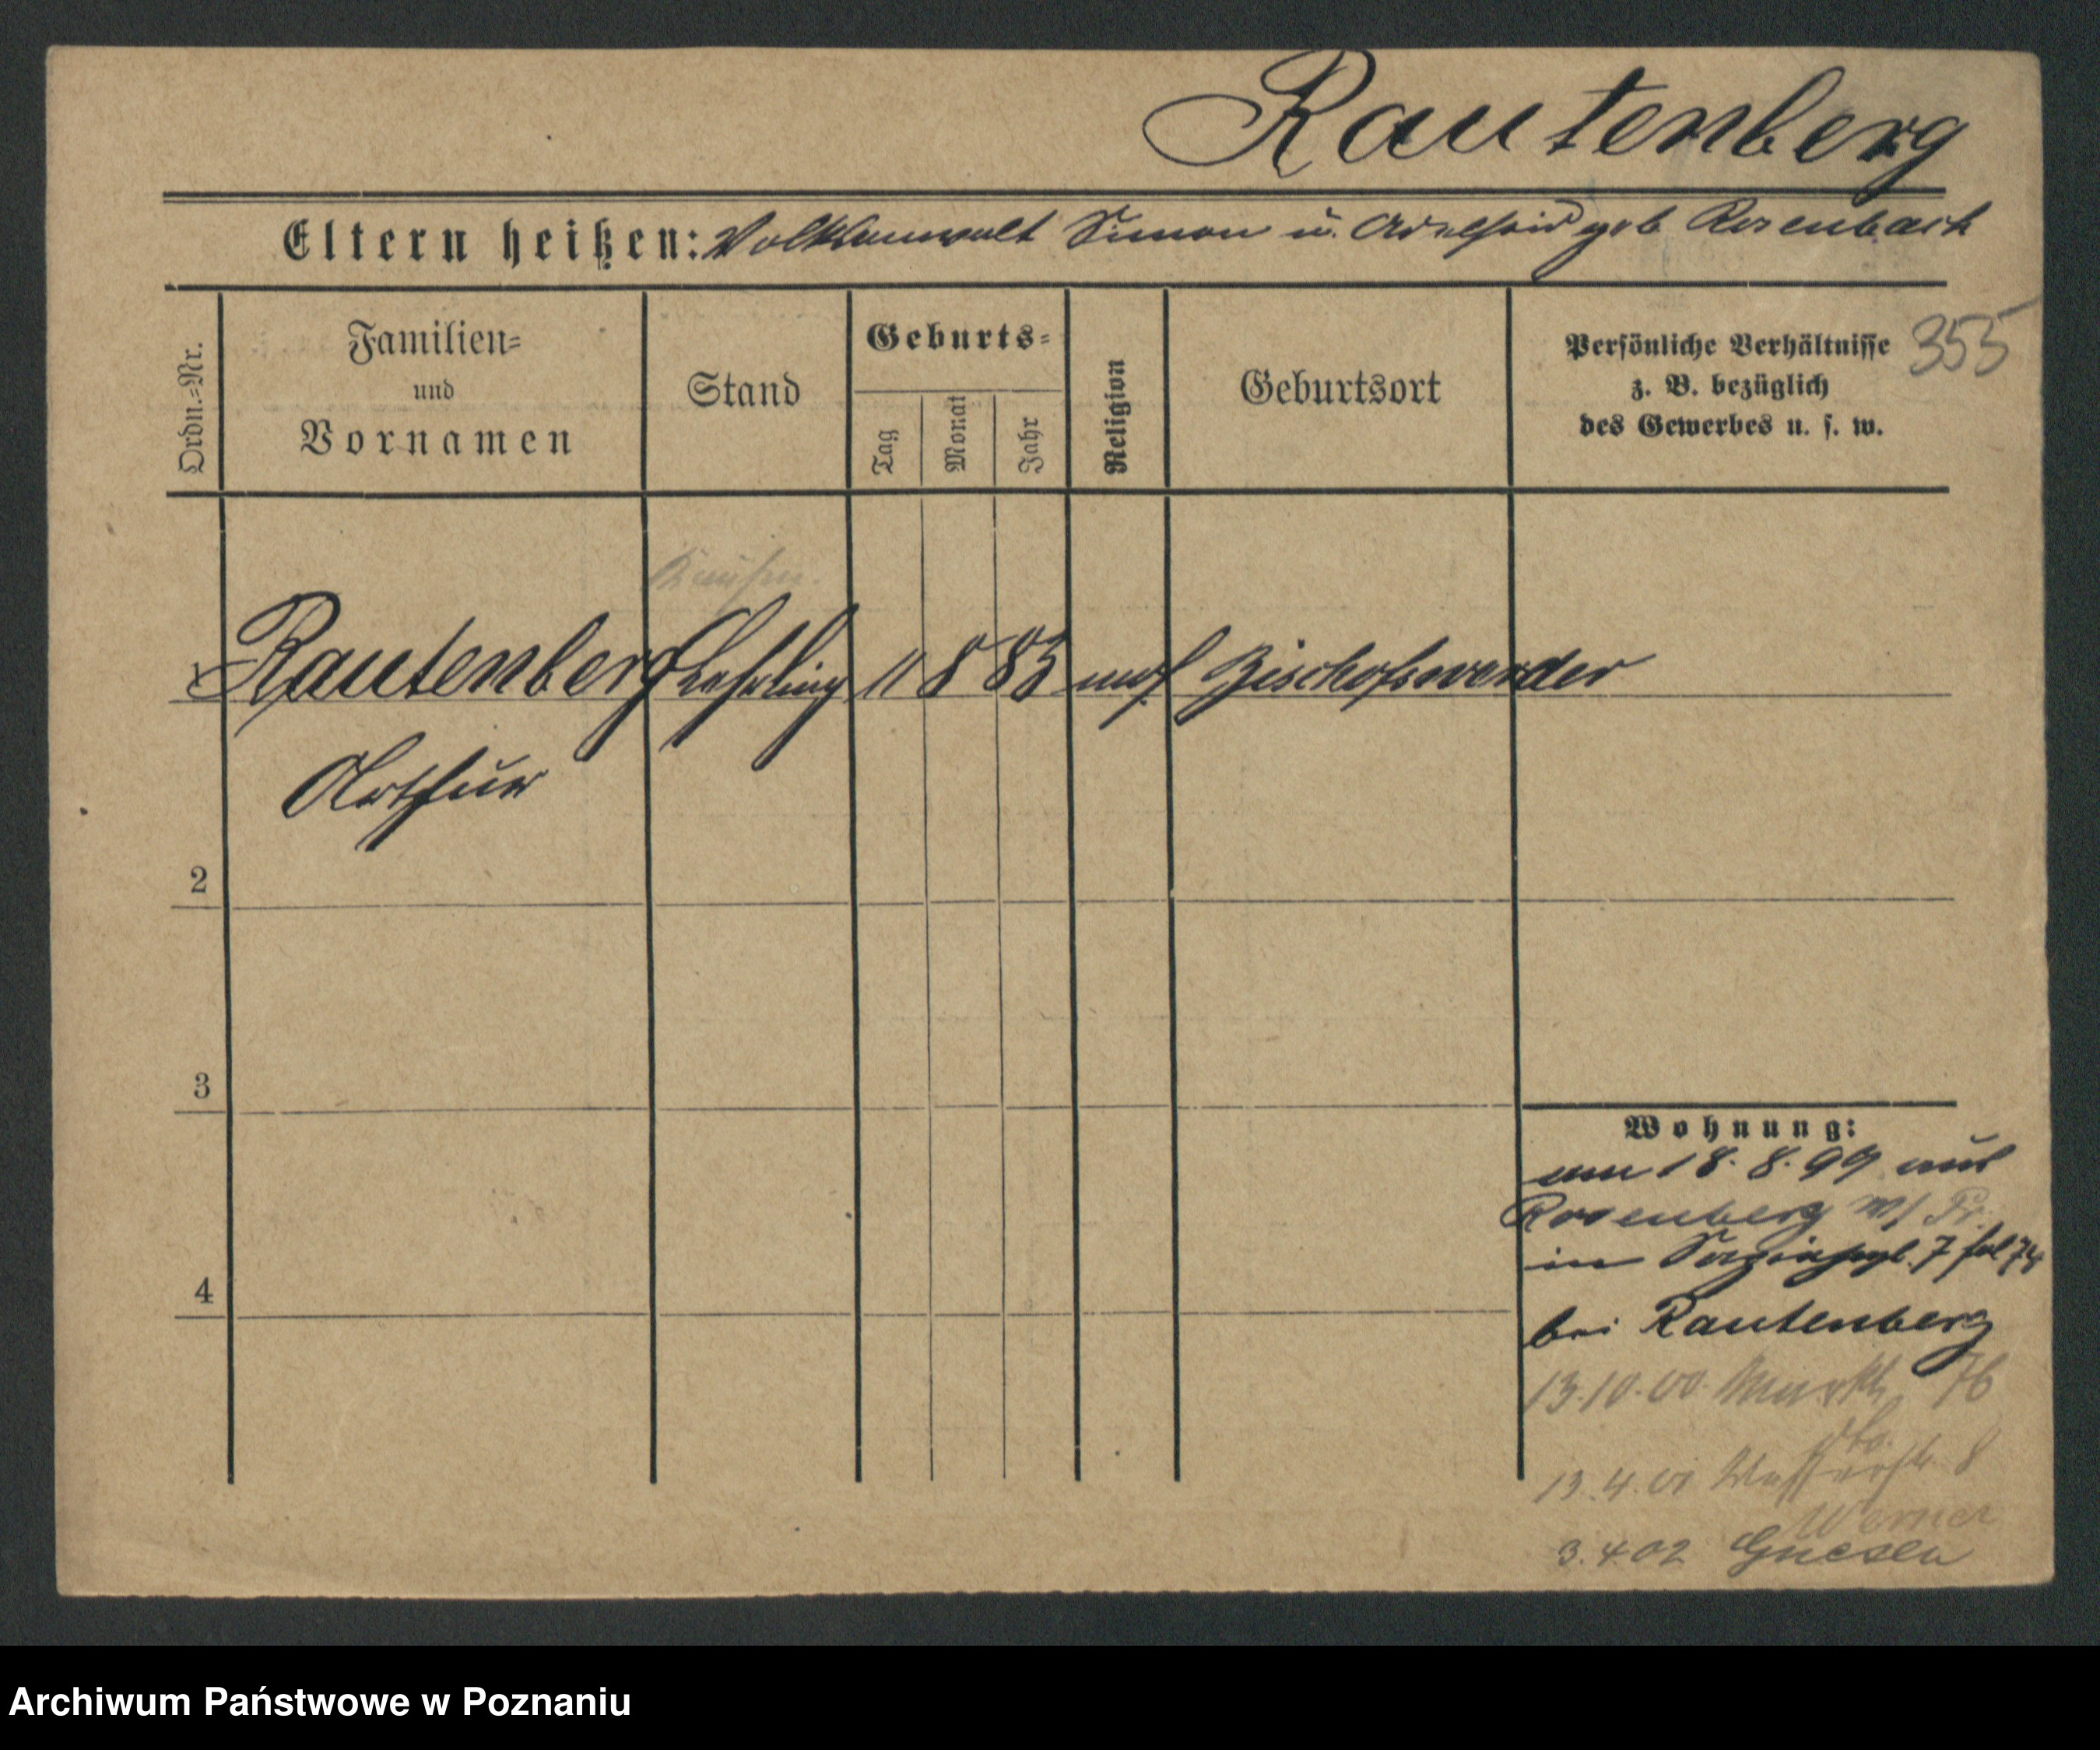 Rautenberg
Eltern heißen: Volksanwalt Simon u. Adelheid geb Rosenbach
Ordn.=Nr.
Familien=
und
Vornamen
Stand
Geburts=
Tag
Monat
Jahr
Religion
Geburtsort
Persönliche Verhältnisse
z. B. bezüglich
des Gewerbes u. s. w.
355
Kaufm.
1 Rautenberg Lehrling 11 8 83 mos Bischofswerder
Arthur
2
3
4
Wohnung:
am 18. 8. 99 aus
Rosenberg W/ Pr.
in 7 fol 74
bei Rautenberg
13.10.00. Markt 76
13.4.01 Wasserstr. 8
Werner
3.4 02 Gnesen
Archiwum Państwowe w Poznaniu